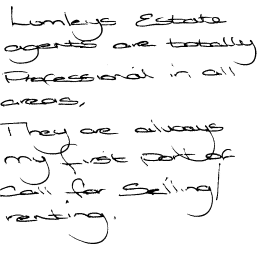 Lumleys Estate
agents are totally
Professional in all
areas,
They are always
my first port of
call for selling/
renting.